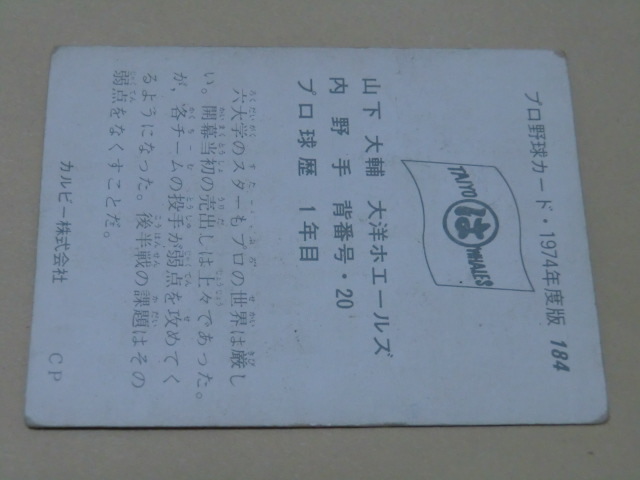 プロ野球カード・1974年度版 184
TAIYO
は
WHALES
山下 大輔 大洋ホエールズ
内野手 背番号・20
プロ球歴 1年目
六大学のスターもプロの世界は厳し
い。開幕当初の売出しは上々であった。
が、各チームの投手が弱点を攻めてく
るようになった。後半戦の課題はその
弱点をなくすことだ。
カルビー株式会社
CP